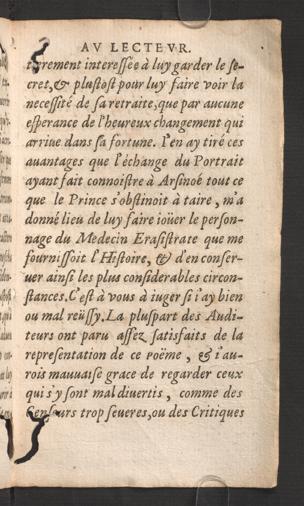 AV LECTEVR.
tierement interessée à luy garder le se-
cret, & plustost pour luy faire voir la
necessité de sa retraite, que par aucune
esperance de l'heureux changement qui
arriue dans sa fortune. I'en ay tiré ces
auantages que l'échange du Portrait
ayant fait connoistre à Arsinoé tout ce
que le Prince s'obstinoit à taire, m'a
donné lieu de luy faire ioüer le person-
nage du Medecin Erasistrate que me
fournissoit l'Histoire, & d'en conser-
uer ainsi les plus considerables circon-
stances. C'est à vous à iuger si i'ay bien
ou mal reüssy. La pluspart des Audi-
teurs ont paru assez satisfaits de la
representation de ce Poëme, & i'au-
rois mauuaise grace de regarder ceux
qui s'y sont mal diuertis, comme des
Censeurs trop seueres, ou des Critiques